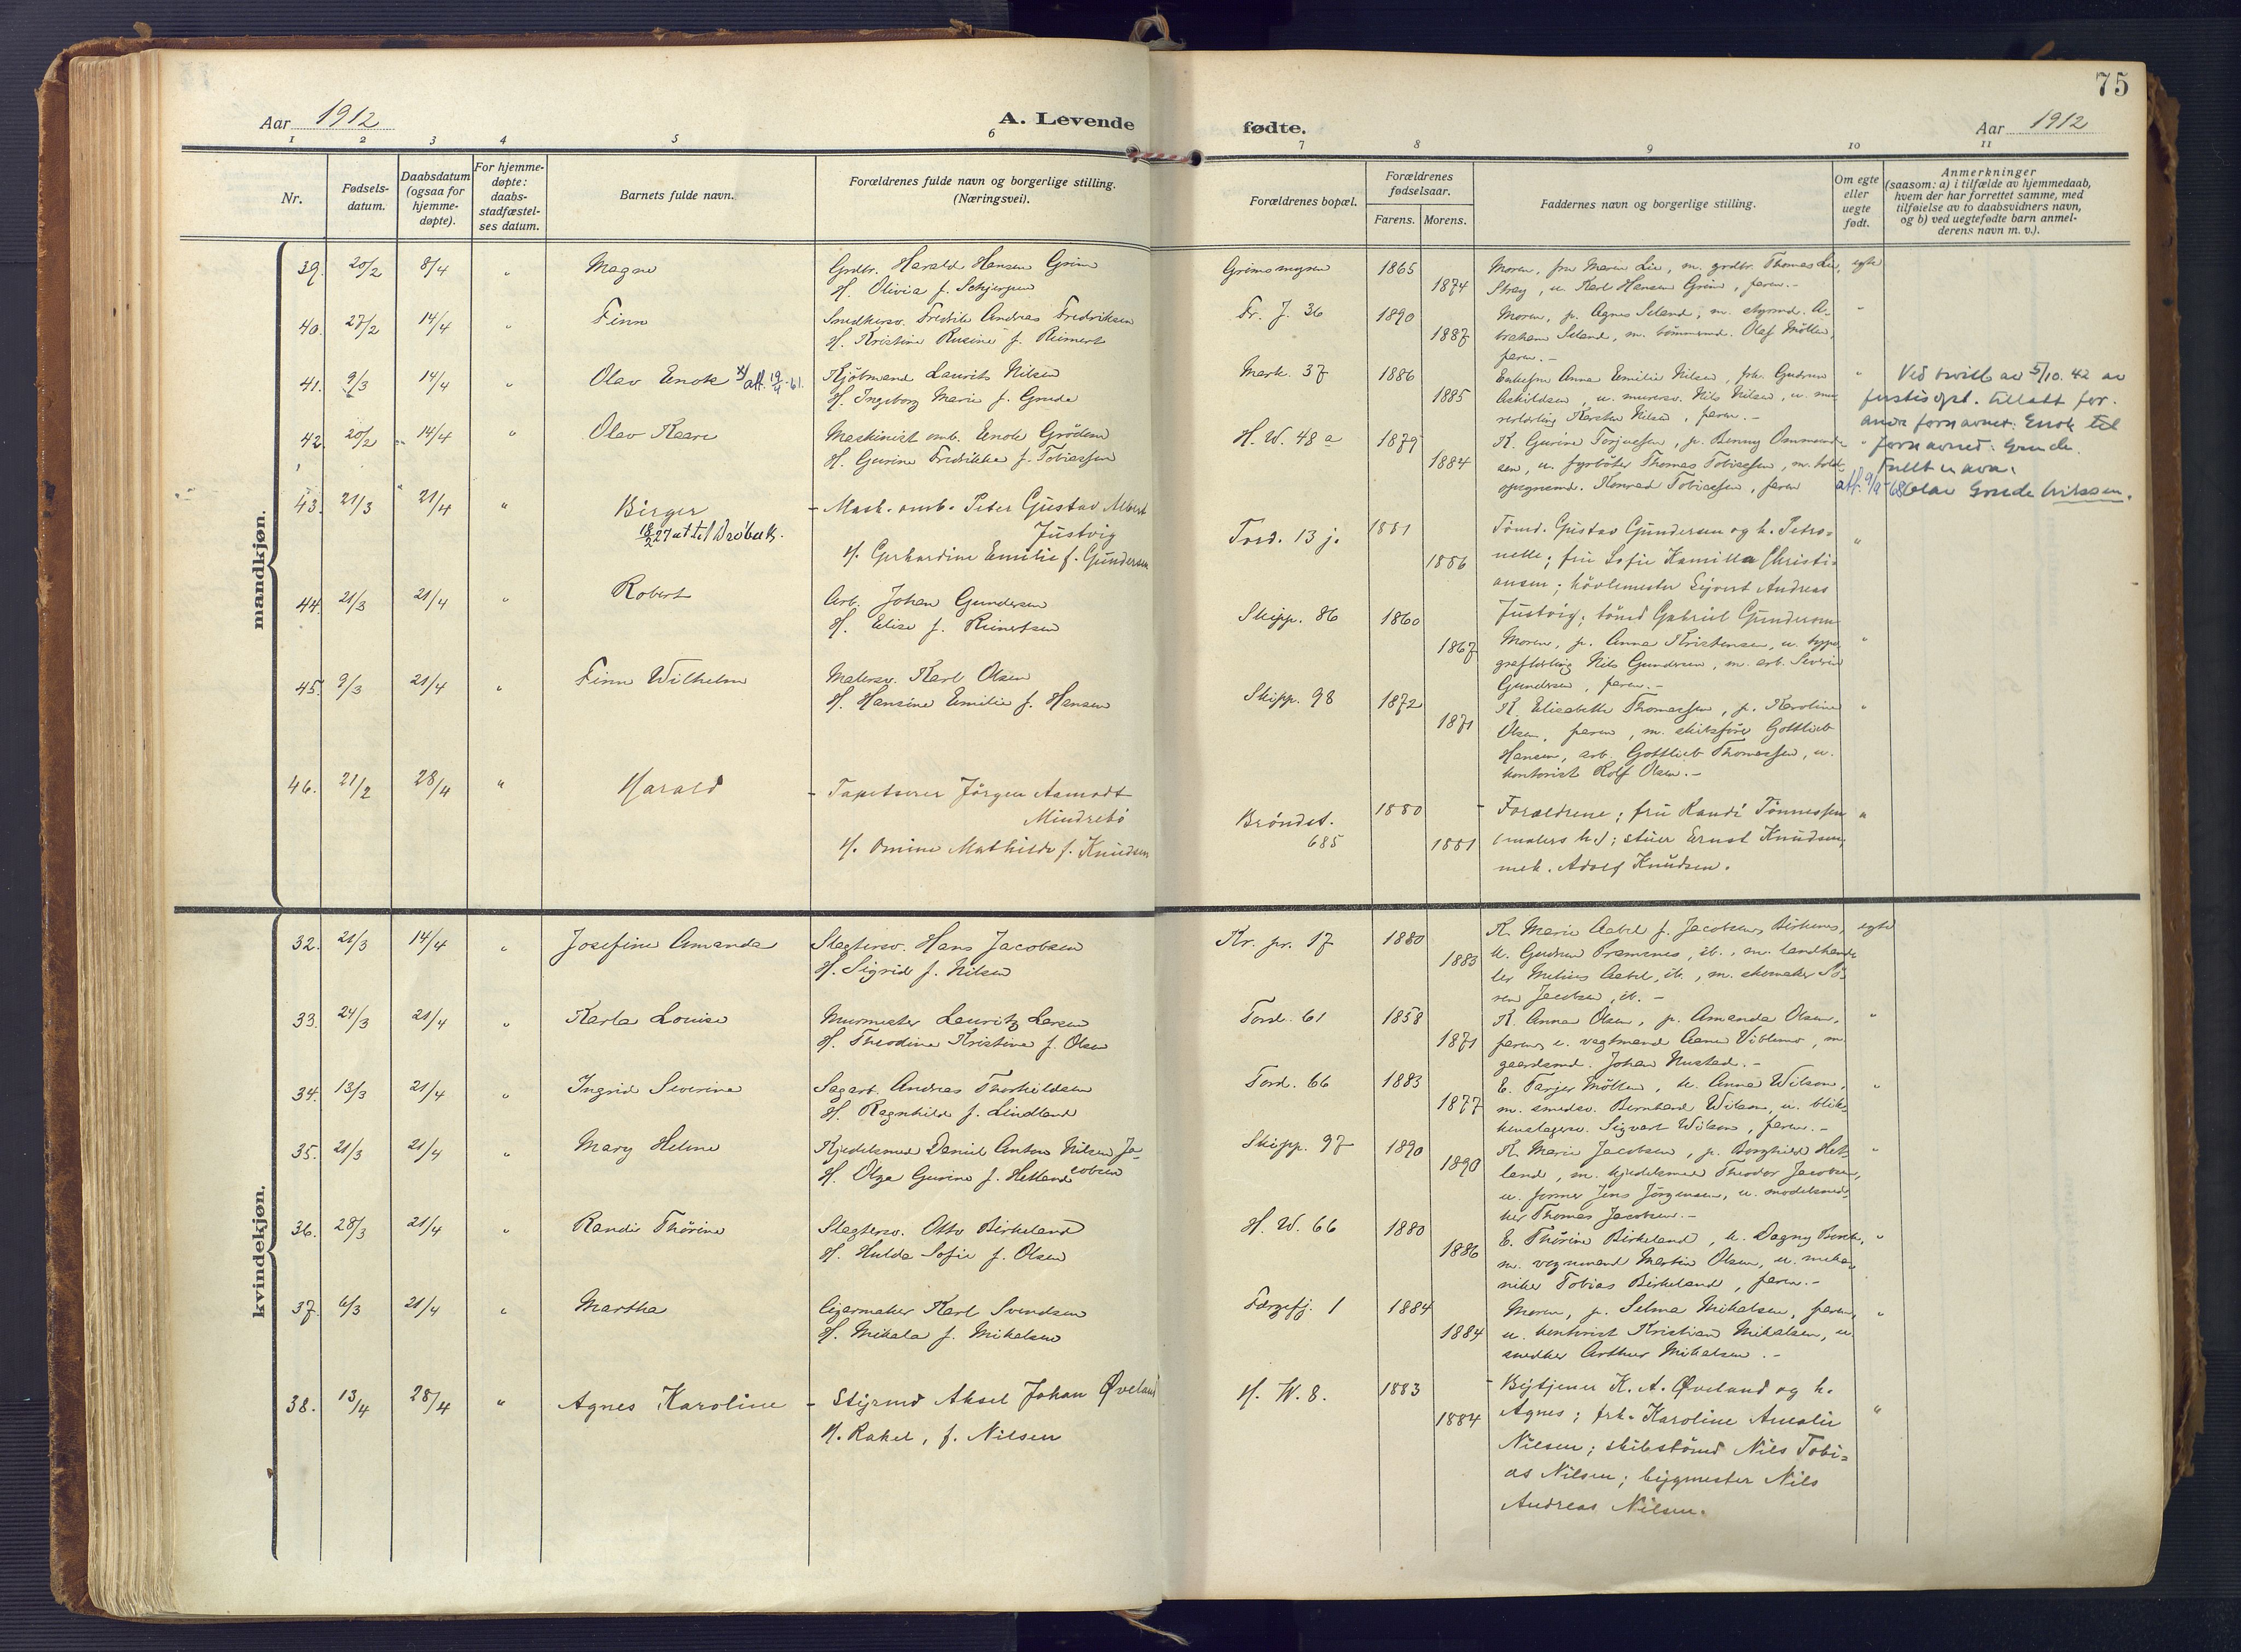 75
Aar 1912
A. Levende
fødte.
Aar 1912
1 2 3 4 5 6 7 8 9 10 11
Nr.
Fødsels-
datum.
Daabsdatum
(ogsaa for
hjemme-
døpte).
For hjemme-
døpte:
daabs-
stadfæstel-
ses datum.
Barnets fulde navn.
Forældrenes fulde navn og borgerlige stilling.
(Næringsvei).
Forældrenes bopæl.
Forældrenes
fødselsaar.
Farens. Morens.
Faddernes navn og borgerlige stilling.
Om egte
eller
uegte
født.
Anmerkninger
(saasom: a) i tilfælde av hjemmedaab,
hvem der har forrettet samme, med
tilføielse av to daabsvidners navn,
og b) ved uegtefødte barn anmel-
derens navn m. v.).
mandkjøn.
39. 20/2 8/4 " Magne
Grdbr. Harald Hansen Grim
H. Olivia f. Schjerpen
Grimsmyren 1865
1874
Moren, fru Maren Lie, m. grdbr. Thomas Lie, egte
Stray, u. Karl Hansen Grim, faren.-
40. 27/2 14/4 " Finn
Snedkersv. Fredrik Andreas Fredriksen
H. Kristine Rusine f. Reimert
Fr. J. 36 1890
1887
Moren, p. Agnes Seland, m. styrmd. A- "
braham Seland, m. tømmermd. Olaf Møllen,
faren.-
41. 9/3 14/4 " Olav Enok x/ att. 19/4-61.
Kjøbmand Laurits Nilsen
H. Ingeborg Marie f. Grude
Mark. 37 1886
1885
Enkefru Anna Emilie Nilsen, frk. Gudrun "
Askildsen, u. murersv. Nils Nilsen, u. mu
rerlærling Karsten Nilsen, faren.-
Ved bevill. av 5/10. 42 av
justisdpt. tillatt for-
andr fornavnet: Enok til
fornavnet: Grude.
Fullt navn:
att. 9/9-68 Olav Grude Nilssen.
42. 20/2 14/4 " Olav Kaare
Maskinist omb. Enok Grødem
H. Gurine Fredrikke f. Tobiassen
H. W. 48 a 1879
1884
K. Gurine Torjussen, p. Benny Ommunds "
sen, u. fyrbøter Thomas Tobiassen, m. told-
opsynsmd. Konrad Tobiassen, faren
43. 21/3 21/4 " Birger
18/2 27 att til Drøbak.
- Mask. omb. Peter Gustav Albert
Justvig
H. Gerhardine Emilie f. Gundersen
Tord. 13 j. 1881
1886
Tømd. Gustav Gundersen og h. Petro-
nelle; fru Sofie Kamilla Christi- "
ansen; høvlemester Sijvert Andreas
Justvig; tømd Gabriel Gundersen
44. 21/3 21/4 " Robert
Arb. Johan Gundersen
H. Elise f. Reinertsen
Skipp. 86 1860
1867
Moren, p. Anna Kristensen, u. typo "
graflærling Nils Gundersen, m. arb. Severin
Gundersen, faren.-
45. 9/3 21/4 " Finn Wilhelm
Malersv. Karl Olsen
H. Hansine Emilie f. Hansen
Skipp. 98 1872
1871
K. Elisabeth Thomassen, p. Karoline "
Olsen, faren, m. skibsfører Gottlieb
Hansen, arb. Gottlieb Thomassen, u.
kontorist Rolf Olsen.-
46. 21/2 28/4 " Harald
- Tapetserer Jörgen Aamodt
Mindrebø
H. Omine Mathilde f. Knudsen
Brøndst.
685
1880
1881
- Forældrene; fru Randi Tønnessen "
(malers h.); stuer Ernst Knudsen,
mek. Adolf Knudsen.
kvindekjøn.
32. 21/3 14/4 " Josefine Amanda
Slagtersv. Hans Jacobsen
H. Sigrid f. Nilsen
Kr. pr. 17 1880
1883
K. Marie Aabel f. Jacobsen, Birkenes, egte
u. Gudrun Tramenes, ib., m. landhand
ler Metius Aabel, ib., m. skomaker Sø-
ren Jacobsen, ib.-
33. 24/3 21/4 " Karla Louise
Murmester Lauritz Larsen
H. Theodine Kristine f. Olsen
Tord. 61 1858
1871
K. Anna Olsen, p. Amanda Olsen, "
faren, u. vagtmand Aane Viblemo, m.
gaardsmd. Johan Nustad.-
34. 13/3 21/4 " Ingrid Severine
Sagarb. Andreas Thorkildsen
H. Ragnhild f. Lindland
Tord. 66 1883
1877
E. Tarjer Møllen, u. Anna Wilson, "
m. smedsv. Bernhard Wilson, u. blik-
kenslagersv. Sigvart Wilson, faren.-
35. 21/3 21/4 " Mary Helene
Kjedelsmed Daniel Anton Nilsen Ja-
cobsen
H. Olga Gurine f. Hetland
Skipp. 97 1890
1890
K. Marie Jacobsen, p. Borghild Het- "
land, m. kjedelsmed Theodor Jacobsen,
u. former Jens Jørgensen, u. modelsned-
ker Thomas Jacobsen.-
36. 28/3 21/4 " Randi Thørine
Slagtersv. Otto Birkeland
H. Hulda Sofie f. Olsen
H. W. 66 1880
1886
E. Thørine Birkeland, u. Dagny Berch, "
m. vognmand Martin Olsen, u. meka-
niker Tobias Birkeland, faren.-
37. 6/3 21/4 " Martha
Cigarmaker Karl Svendsen
H. Mikala f. Mikalsen
Færgefj. 1 1884
1884
Moren, p. Selma Mikalsen, faren, "
u. kontorist Kristian Mikalsen, u.
snedker Arthur Mikalsen.-
38. 13/4 28/4 " Agnes Karoline
- Styrmd Aksel Johan Øveland
H. Rakel, f. Nilsen
H. W. 8. 1883
1884
- Bytjener K. A. Øveland og h.
Agnes; frk. Karoline Amalie "
Nilsen; skibstømd Nils Tobi-
as Nilsen; byggmester Nils
Andreas Nilsen.